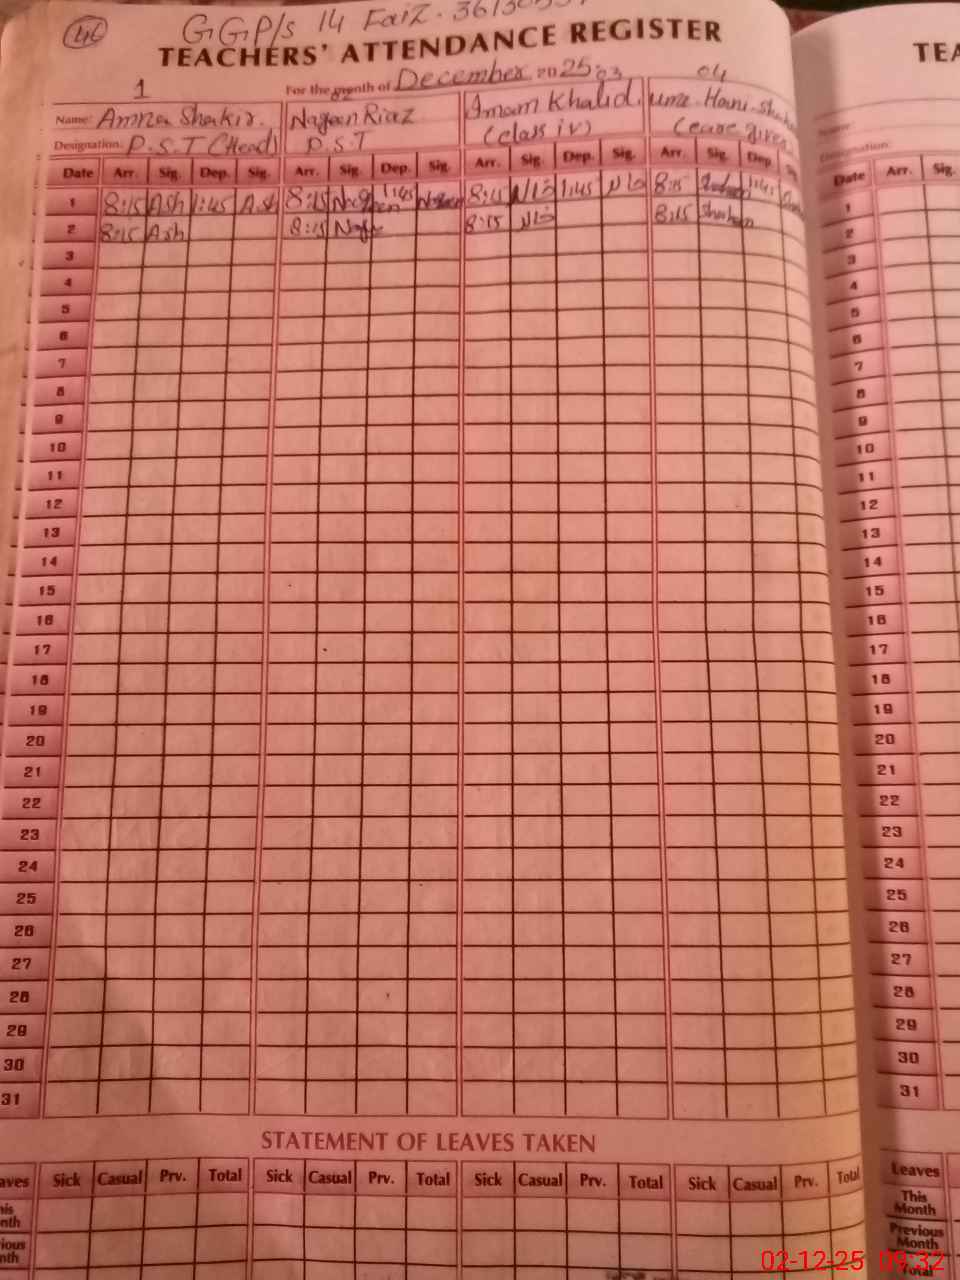 46 GGP/s 14 Faiz. 36130
TEACHERS' ATTENDANCE REGISTER TEA
1 For the month of December 2025 03 04
02
Name: Amna Shakir. Nageen Riaz Imam Khalid. Hani
Designation: P.S.T (Head) P.S.T (class iv) (care giver
Date Arr. Sig. Dep. Sig. Arr. Sig. Dep. Sig. Arr. Sig. Dep. Sig. Arr. Sig. Dep. Date Arr. Sig.
1 8:15 Ash 1:45 Ash 8:15 1:45 8:15 1:45 8:15 1:45 1
2 8:15 Ash 8:15 8:15 8:15 2
3 3
4 4
5 5
6 6
7 7
8 8
9 9
10 10
11 11
12 12
13 13
14 14
15 15
16 16
17 17
18 18
19 19
20 20
21 21
22 22
23 23
24 24
25 25
26 26
27 27
28 28
29 29
30 30
31 31
STATEMENT OF LEAVES TAKEN
aves Sick Casual Prv. Total Sick Casual Prv. Total Sick Casual Prv. Total Sick Casual Prv. Total Leaves
his nth This Month
ious nth Previous Month
Total
02-12-25 09:32